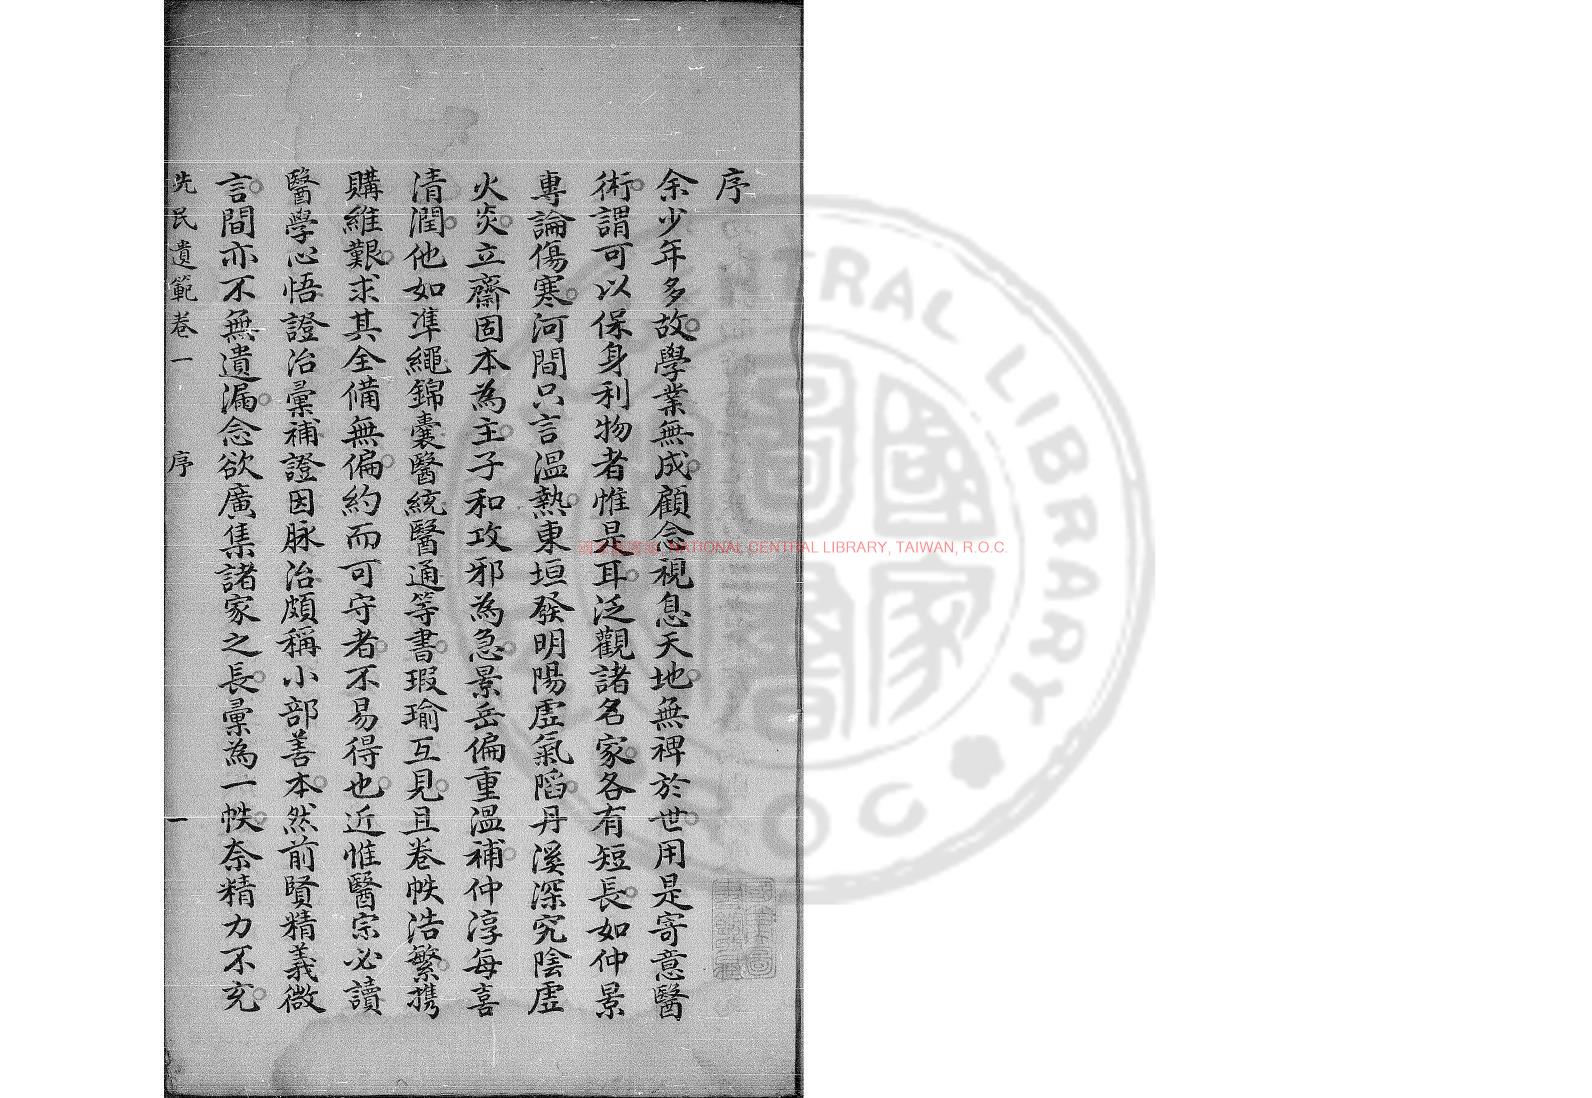 序
余少年多故學業無成顧念視息天地無裨於世用是寄意醫
術謂可以保身利物者惟是耳泛觀諸名家各有短長如仲景
專論傷寒河間只言溫熱東垣發明陽虛氣陷丹溪深究陰虛
火炎立齋固本為主子和攻邪為急景岳偏重溫補仲淳每喜
清潤他如準繩錦囊醫統醫通等書瑕瑜互見且卷帙浩繁攜
購維艱求其全備無偏約而可守者不易得也近惟醫宗必讀
醫學心悟證治彙補證因脉治頗稱小部善本然前賢精義微
言間亦不無遺漏念欲廣集諸家之長彙為一帙奈精力不充
先民遺範卷一 序 一
NATIONAL CENTRAL LIBRARY, TAIWAN, R.O.C.